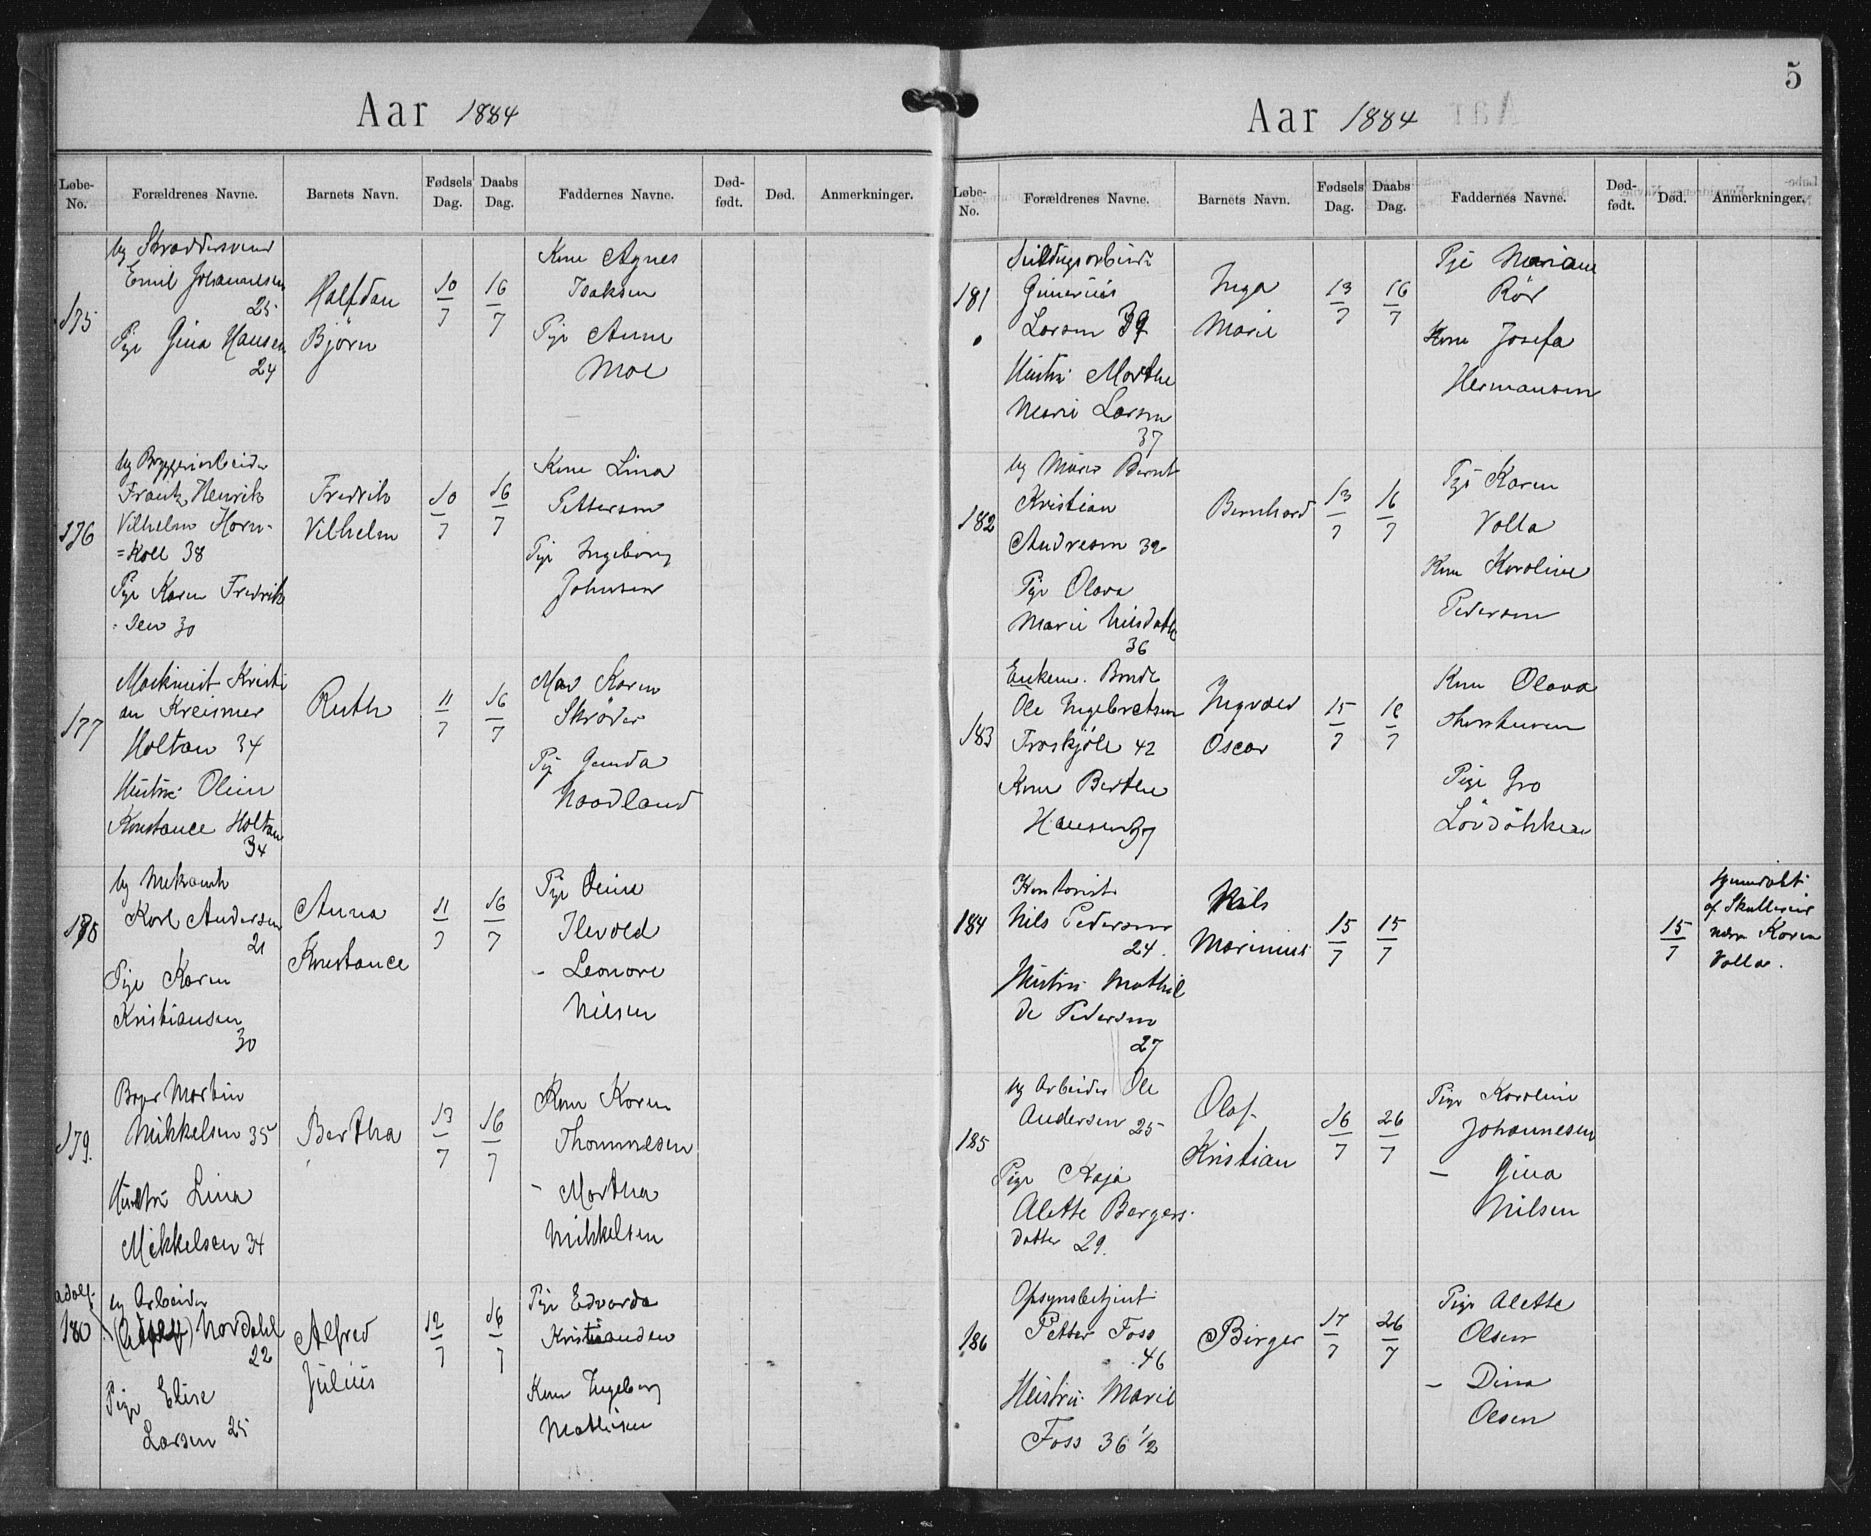 Aar 1884
Løbe-No. Forældrenes Navne. Barnets Navn. Fødsels Dag. Daabs Dag. Faddernes Navne. Død-født. Død. Anmerkninger.
175
Ug Skræddersvend
Emil Johannesen
25
Pige Gina Hansen
24
Halfdan
Bjørn
10/7
16/7
Kone Agnes
Isaksen
Pige Anne
Moe
176
Ug Bryggeriarbeider
Frantz Henrik
Vilhelm Horn-
=Koll 38
Pige Karen Fredrik
- sen 30
Fredrik
Vilhelm
10/7
16/7
Kone Lina
Pettersen
Pige Ingeborg
Johnsen
177
Maskinist Kristi
an Kreismer
Holtan 34
Hustru Oline
Konstance Holtan
34
Ruth
11/7
16/7
Mad Karen
Skrøder
Pige Gunda
Naadland
178
Ug Mekanik
Karl Andersen
21
Pige Karen
Kristiansen
30
Anna
Konstance
11/7
16/7
Pige Oline
Ilevold
- Leonore
Nilsen
179.
Bager Martin
Mikkelsen 35
Hustru Lina
Mikkelsen 34
Bertha
13/7
16/7
Kone Karen
Thommesen
- Martha
Mikkelsen
Adolf.
180
Ug Arbeider
(Adolf) Nordahl
22
Pige Elise
Larsen 25
Alfred
Julius
12/7
16/7
Pige Edvarda
Kristiansen
Kone Ingeborg
Mathisen
5
Aar 1884
Løbe-No. Forældrenes Navne. Barnets Navn. Fødsels Dag. Daabs Dag. Faddernes Navne. Død-født. Død. Anmerkninger.
181
Gunerius
Larsen 39
Hustru Marthe
Marie Larsen
37
Inga
Marie
13/7
16/7
Pige Mariane
Rör
Kone Josefa
Hermansen
182
Ug Murer Bernt
Kristian
Andresen 32
Pige Olava
Marie Nilsdatter
36
Bernhard
13/7
16/7
Pige Karen
Volla
Kone Karoline
Pedersen
183
Enkem. Bonde
Ole Ingebretsen
Froskjöle 42
Kone Berthe
Hansen 37
Ingvald
Oscar
15/7
16/7
Kone Olava
Pige Gro
Lövdökken
184
Kontorist
Nils Pedersen
24.
Hustru Mathil
de Pedersen
27
Nils
Marinius
15/7
15/7
15/7
Hjemdøbt
af
Karen
Volla.
185
Ug Arbeider Ole
Andersen 25
Pige Kaja
Alette Bergers-
datter 29.
Olaf
Kristian
16/7
26/7
Pige Karoline
Johannesen
- Gina
Nilsen
186
Opsynsbetjent
Petter Foss
46
Hustru Marie
Foss 36 1/2
Birger
17/7
26/7
Pige Alette
Olsen
- Dina
Olsen